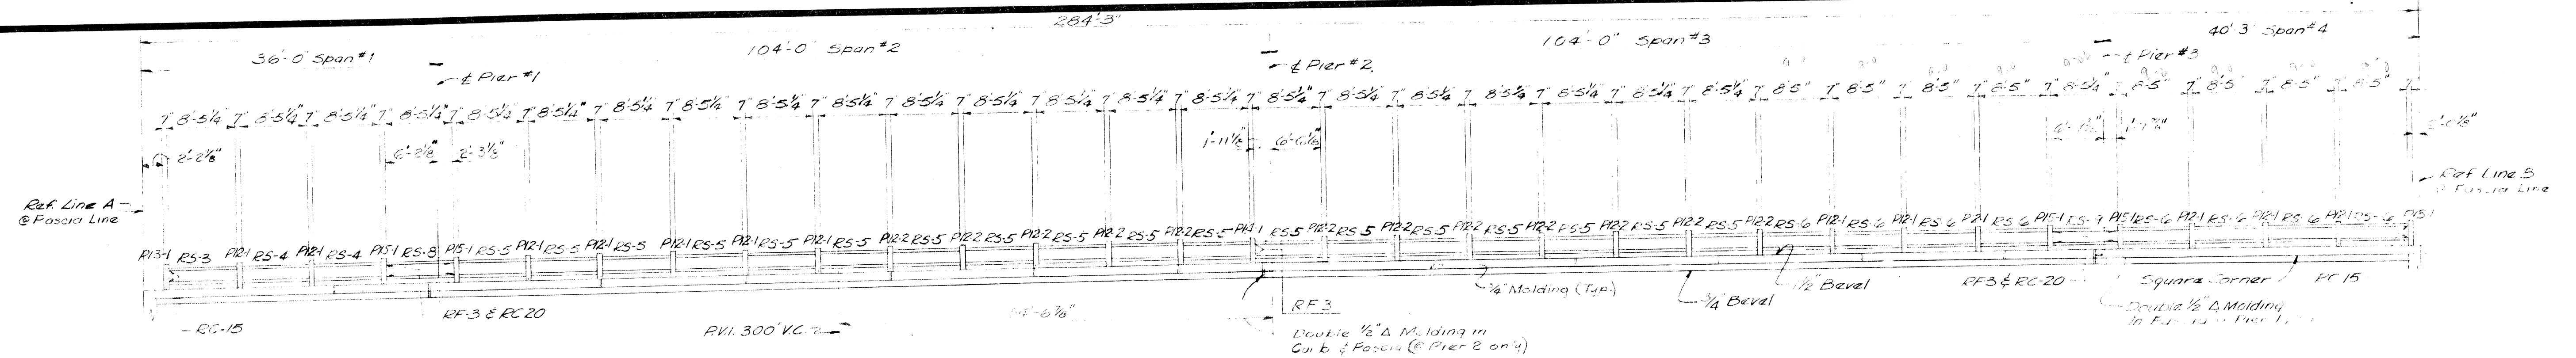 284'-3"
36'-0" Span #1
104'-0" Span #2
104'-0" Span #3
40'-3" Span #4
℄ Pier #1
℄ Pier #2
℄ Pier #3
7" 8'-5¼" 7" 8'-5¼" 7" 8'-5¼" 7" 8'-5¼" 7" 8'-5¼" 7" 8'-5¼" 7" 8'-5¼" 7" 8'-5¼" 7" 8'-5¼" 7" 8'-5¼" 7" 8'-5¼" 7" 8'-5¼" 7" 8'-5¼" 7" 8'-5¼" 7" 8'-5¼" 7" 8'-5¼" 7" 8'-5¼" 7" 8'-5¼" 7" 8'-5¼" 7" 8'-5¼" 7" 8'-5¼" 7" 8'-5" 7" 8'-5" 7" 8'-5" 7" 8'-5" 7" 8'-5¼" 7" 8'-5" 7" 8'-5" 7" 8'-5" 7" 8'-5" 7"
2'-2⅛" 6'-2⅛" 2'-3⅛" 1'-11⅛" 6'-6⅛"
Ref. Line A
@ Fascia Line
Ref Line B
Fascia Line
P13-1 RS-3 P12-1 RS-4 P12-1 RS-4 P15-1 RS-8 P15-1 RS-5 P12-1 RS-5 P12-1 RS-5 P12-1 RS-5 P12-1 RS-5 P12-1 RS-5 P12-2 RS-5 P12-2 RS-5 P12-2 RS-5 P12-2 RS-5 P12-2 RS-5 P14-1 RS-5 P12-2 RS-5 P12-2 RS-5 P12-2 RS-5 P12-2 RS-5 P12-2 RS-5 P12-2 RS-5 P12-2 RS-6 P12-1 RS-6 P12-1 RS-6 P12-1 RS-6 P15-1 RS-9 P15-1 RS-6 P12-1 RS-6 P12-1 RS-6 P12-1 RS-6 P13-1
RC-15
RF-3 & RC20
P.V.I. 300' V.C.
RF3
Double ½" Δ Molding in
Curb & Fascia (@ Pier 2 only)
¾" Molding (Typ.)
¾" Bevel
1½" Bevel
RF3 & RC-20
Square Corner
15
Double ½" Δ Molding
in Pier 1,